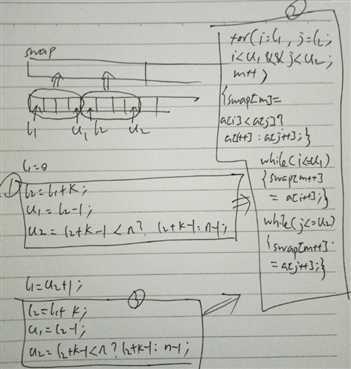 swap
l1 u1 l2 u2
l1=0
①
l2=l1+k;
u1=l2-1;
u2=l2+k-1<n? l2+k-1:n-1;
l1=u2+1;
③
l2=l1+k;
u1=l2-1;
u2=l2+k-1<n? l2+k-1:n-1;
②
for(i=l1, j=l2;
i<u1 && j<u2;
m++)
{swap[m]=
a[i]<a[j]?
a[i++]:a[j++];}
while(i<=u1)
{swap[m++]
=a[i++];}
while(j<=u2)
{swap[m++]
=a[j++];}